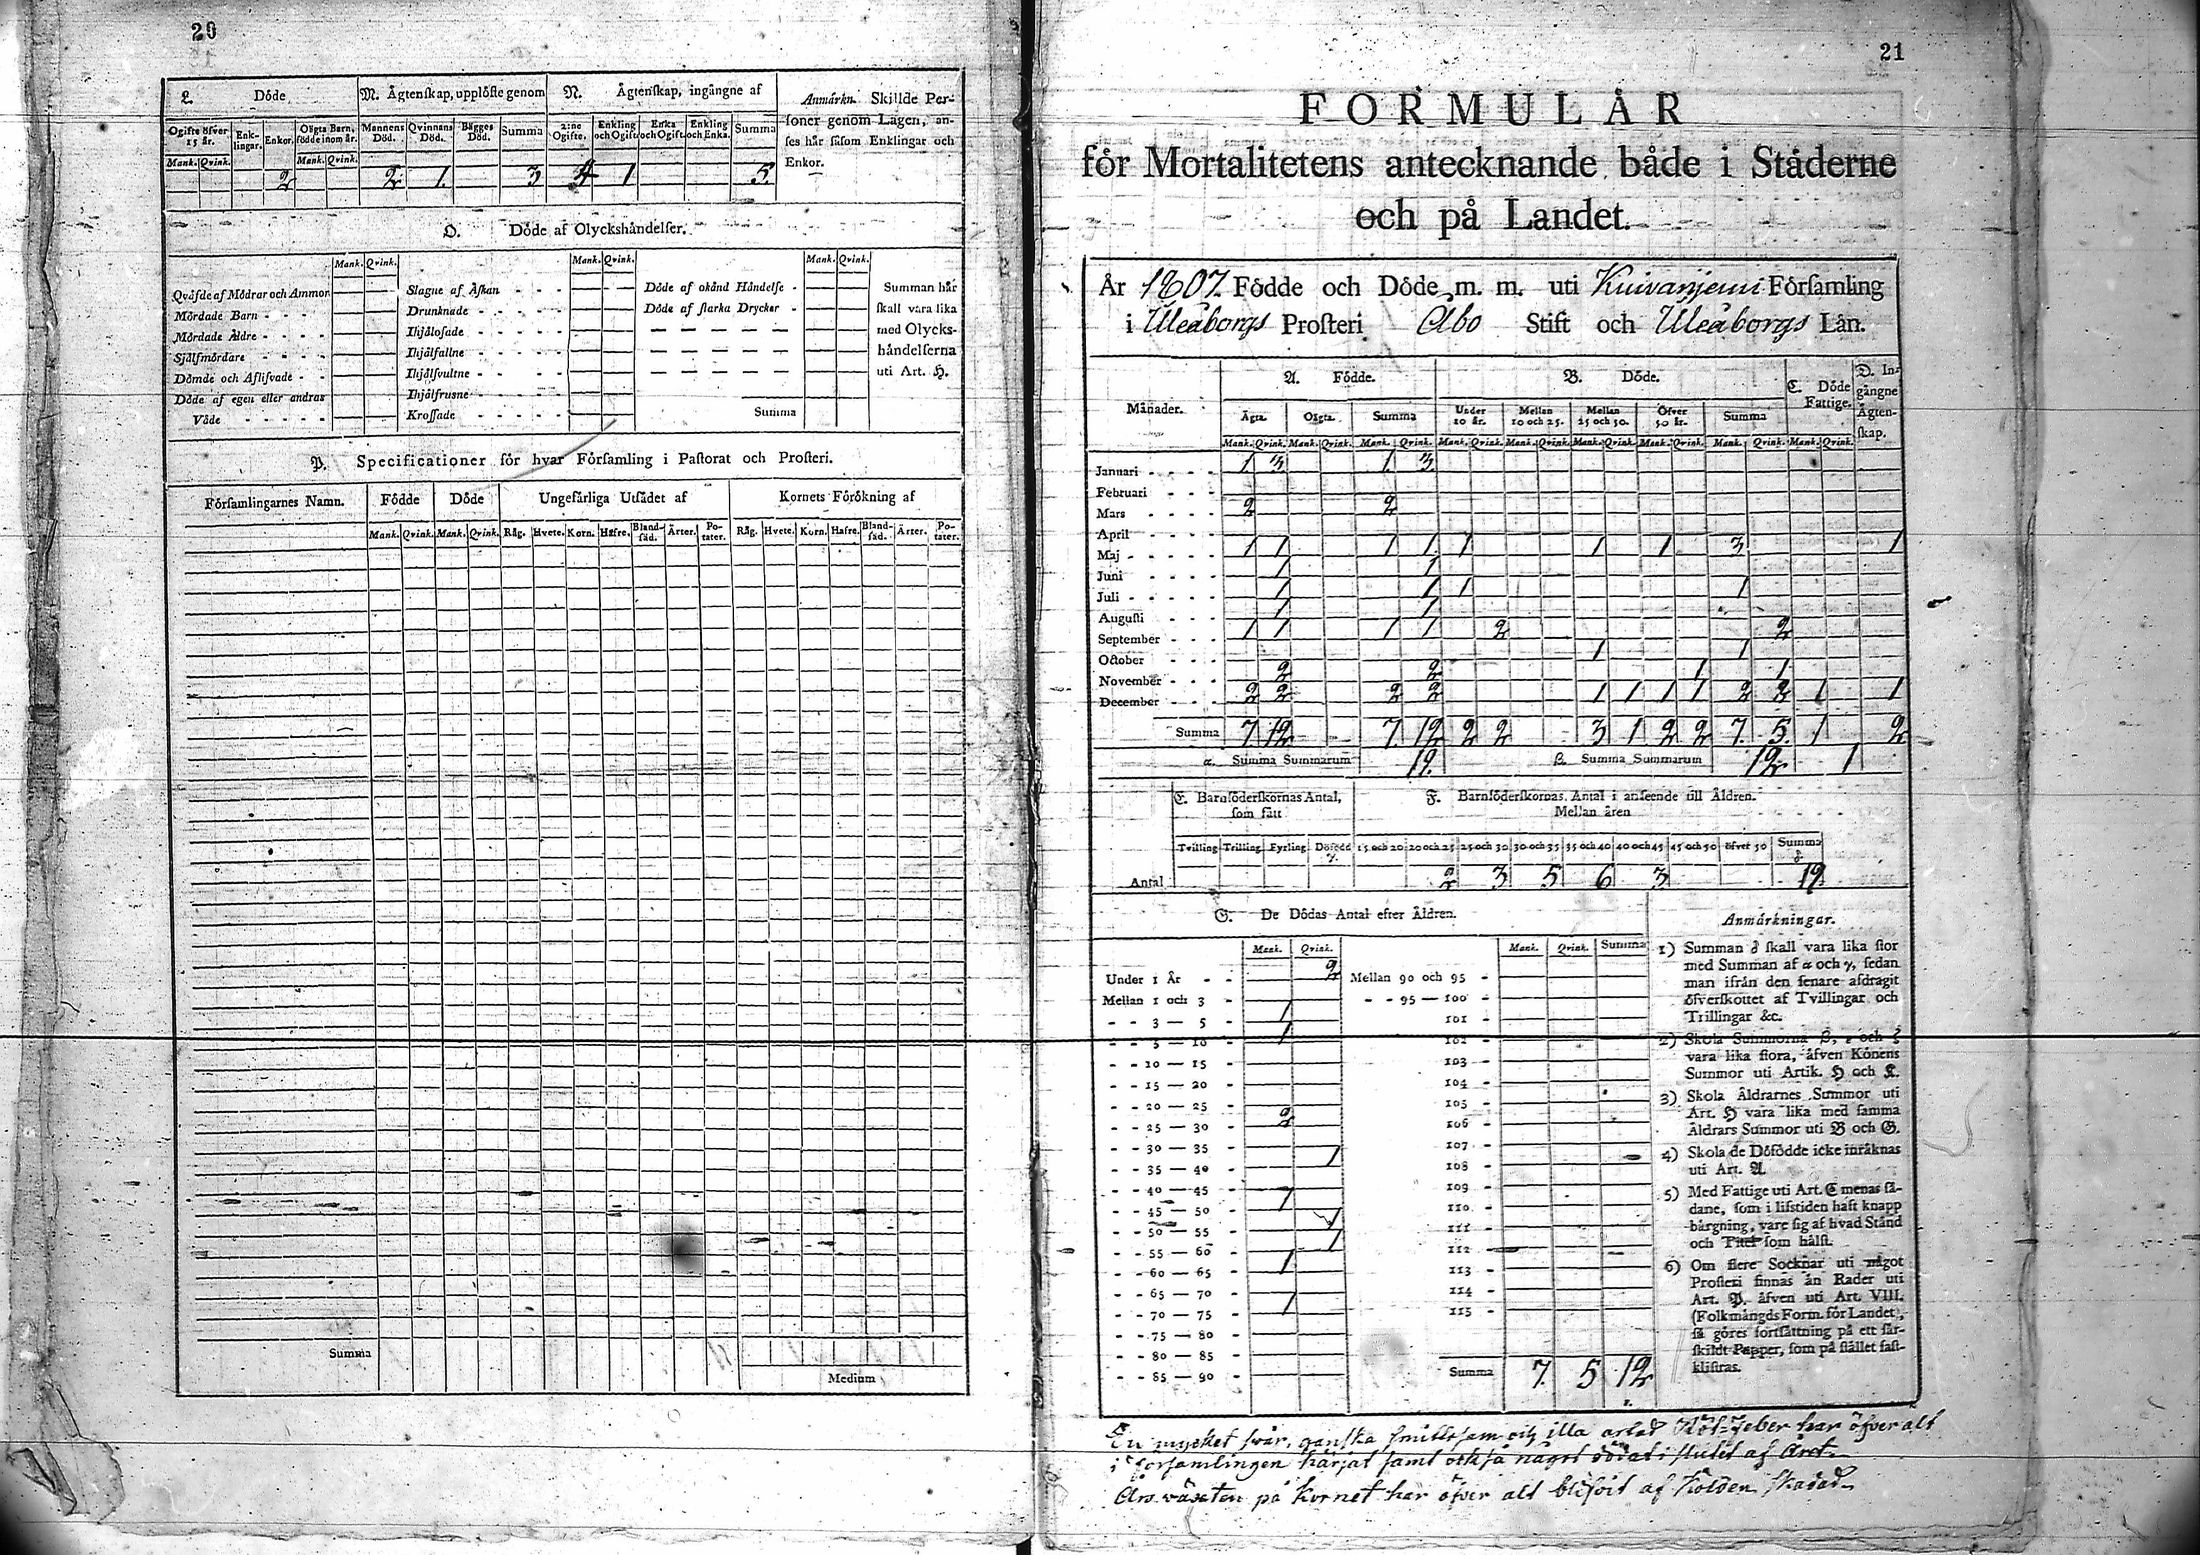 20
L. Döde
M. Ägtenskap, upplöste genom
N. Ägtenskap, ingångne af
Anmärkn. Skillde Personer genom Lagen, anses här såsom Enklingar och Enkor.
Ogifte öfver 15 år. Enklingar. Enkor. Oägta Barn, födde inom år. Mannens Död. Qvinnans Död. Bägges Död. Summa 2:ne Ogifte. Enkling och Ogift. Enka och Ogift. Enkling och Enka. Summa
Mank. Qvink. Mank. Qvink.
2 2 1. 3 4 1 5.
O. Döde af Olyckshändelser.
Mank. Qvink. Mank. Qvink. Mank. Qvink.
Qväfde af Mödrar och Ammor Slagne af Åskan Döde af okänd Händelse Summan här
Mördade Barn Drunknade Döde af starka Drycker skall vara lika
Mördade Äldre Ihjälosade med Olycks-
Självmördare Ihjälfallne händelserna
Dömde och Aflifvade Ihjälsvultne uti Art. H.
Döde af egen eller andras Ihjälfrusne
Våde Krossade Summa
P. Specificationer för hvar Församling i Pastorat och Prosteri.
Församlingarnes Namn. Födde Döde Ungefärliga Utsädet af Kornets Förökning af
Mank. Qvink. Mank. Qvink. Råg. Hvete. Korn. Hafre. Bland-säd. Ärter. Po-tater. Råg. Hvete. Korn. Hafre. Bland-säd. Ärter. Po-tater.
Summa
Medium
21
FORMULÄR
för Mortalitetens antecknande både i Städerne
och på Landet.
År 1807. Födde och Döde m. m. uti Kuivanjemi Församling
i Uleåborgs Prosteri Åbo Stift och Uleåborgs Län.
Månader. A. Födde. B. Döde. C. Döde Fattige. D. Ingångne Ägtenskap.
Ägta. Oägta. Summa Under 10 år. Mellan 10 och 25. Mellan 25 och 50. Öfver 50 år. Summa
Mank. Qvink. Mank. Qvink. Mank. Qvink. Mank. Qvink. Mank. Qvink. Mank. Qvink. Mank. Qvink. Mank. Qvink. Mank. Qvink.
Januari 1. 3. 1. 3.
Februari
Mars 2 2
April
Maj 1 1 1 1 1 1 1 3 1
Juni 1 1
Juli 1 1 1 1
Augusti 1 1
September 1 1 1 1 2 2
October 1 1
November 2 2 1 1
December 2 2 2 2 1 1 1 1 2 2 1 1
Summa 7. 12 7. 12 2 2 3 1 2 2 7. 5. 1 2
α. Summa Summarum 19. β. Summa Summarum 12 1
E. Barnföderskornas Antal, som fått
F. Barnföderskornas Antal i anseende till Åldren.
Mellan åren
Tvilling Trilling Fyrling Dödfödd γ. 15 och 20 20 och 25 25 och 30 30 och 35 35 och 40 40 och 45 45 och 50 öfver 50 Summa δ
Antal 2 3 5 6 3 19
G. De Dödas Antal efter Åldren.
Mank. Qvink. Mank. Qvink. Summa
Under 1 År 2 Mellan 90 och 95
Mellan 1 och 3 95 — 100
3 — 5 1 101
5 — 10 1 102
10 — 15 103
15 — 20 104
20 — 25 105
25 — 30 2 106
30 — 35 107
35 — 40 1 108
40 — 45 109
45 — 50 1 110
50 — 55 1 111
55 — 60 1 112
60 — 65 1 113
65 — 70 114
70 — 75 1 115
75 — 80
80 — 85
85 — 90 Summa 7. 5 12
Anmärkningar.
1) Summan δ skall vara lika stor
med Summan af α och γ, sedan
man ifrån den senare afdragit
öfverskottet af Tvillingar och
Trillingar &c.
2) Skola Summorna β, ε och ζ
vara lika stora, äfven Könens
Summor uti Artik. H och K.
3) Skola Åldrarnes Summor uti
Art. H vara lika med samma
Åldrars Summor uti B och G.
4) Skola de Dödfödde icke inräknas
uti Art. A.
5) Med Fattige uti Art. C menas så-
dane, som i lifstiden haft knapp
bärgning, vare sig af hvad Stånd
och Titel som hälst.
6) Om flere Socknar uti något
Prosteri finnas än Rader uti
Art. P. äfven uti Art. VIII.
(Folkmängds Form. för Landet),
så göres fortsättning på ett sär-
skildt Papper, som på stället fast-
klistras.
En mycket svår, ganska smittosam och illa artad Röt-Feber har öfver alt
i församlingen härjat samt också något dödat i slutet af Året.
Års växten på Kornet har öfver alt blifvit af Kölden skadad.